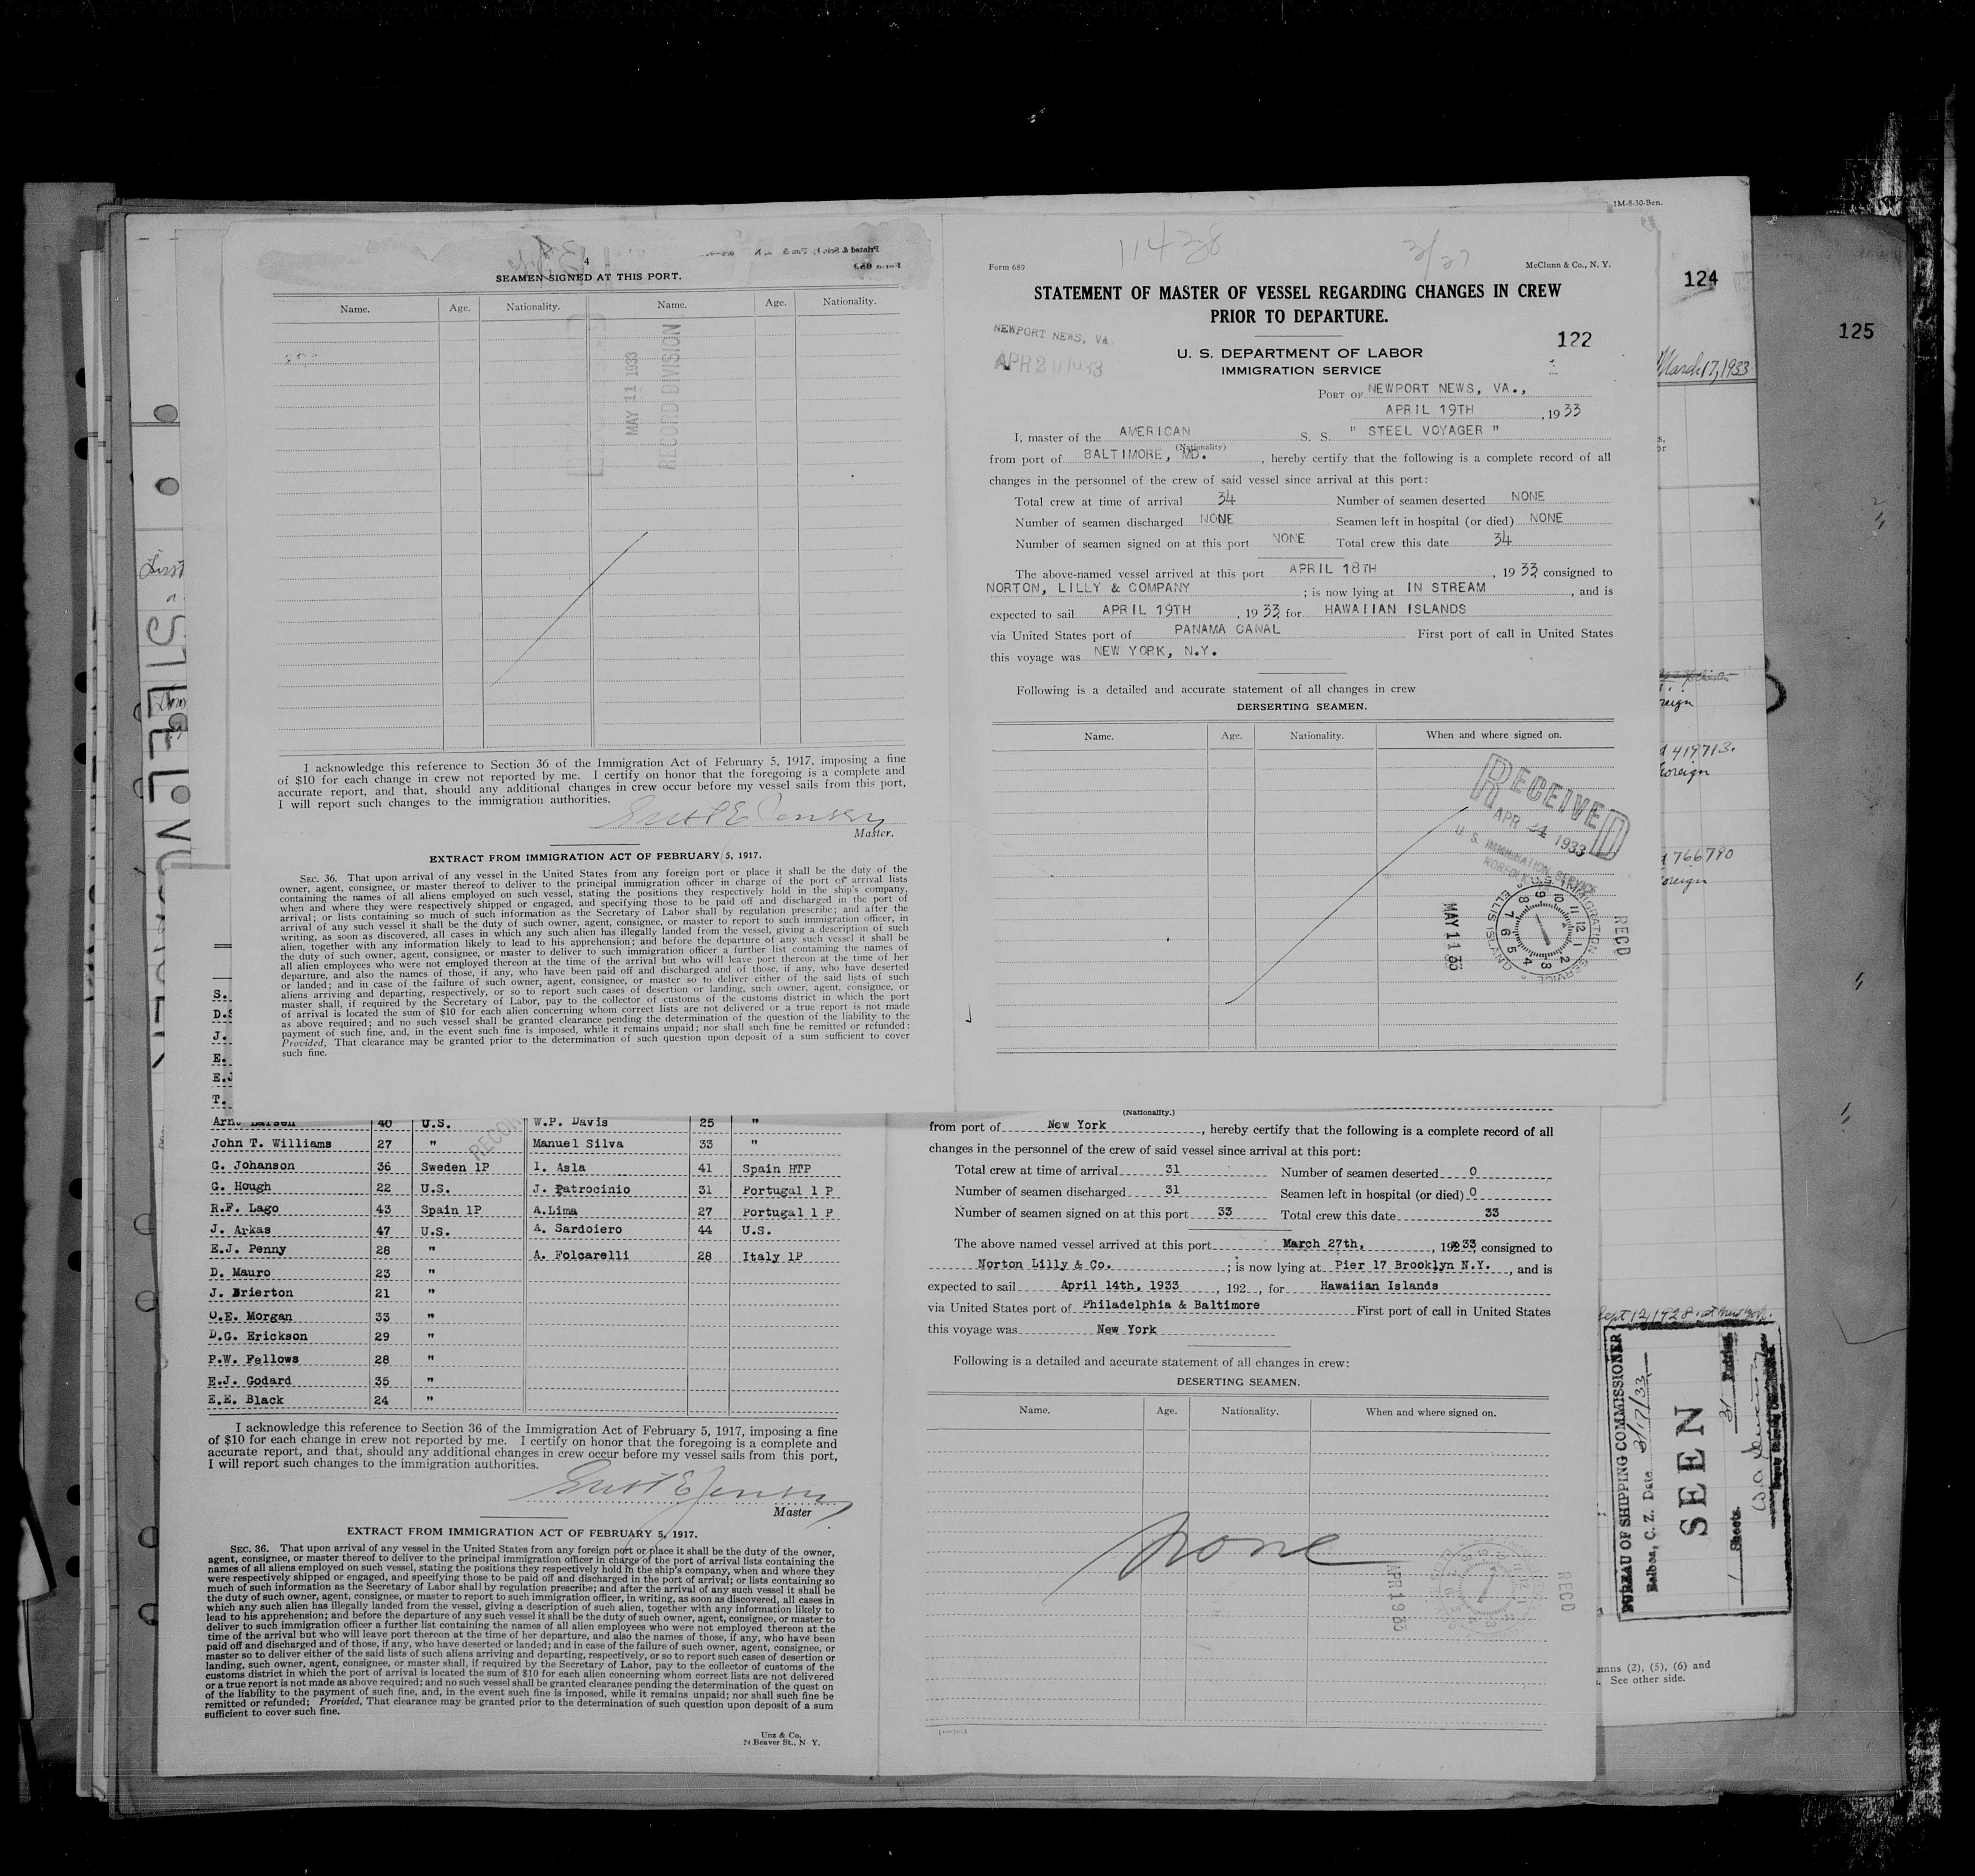 1M-8-30-Ben.
124
125
March 17, 1933
4
SEAMEN SIGNED AT THIS PORT.
Name. Age. Nationality. Name. Age. Nationality.
MAY 11 1933
RECORD DIVISION
I acknowledge this reference to Section 36 of the Immigration Act of February 5, 1917, imposing a fine
of $10 for each change in crew not reported by me. I certify on honor that the foregoing is a complete and
accurate report, and that, should any additional changes in crew occur before my vessel sails from this port,
I will report such changes to the immigration authorities.
Gust E Jensen
Master.
EXTRACT FROM IMMIGRATION ACT OF FEBRUARY 5, 1917.
SEC. 36. That upon arrival of any vessel in the United States from any foreign port or place it shall be the duty of the
owner, agent, consignee, or master thereof to deliver to the principal immigration officer in charge of the port of arrival lists
containing the names of all aliens employed on such vessel, stating the positions they respectively hold in the ship's company,
when and where they were respectively shipped or engaged, and specifying those to be paid off and discharged in the port of
arrival; or lists containing so much of such information as the Secretary of Labor shall by regulation prescribe; and after the
arrival of any such vessel it shall be the duty of such owner, agent, consignee, or master to report to such immigration officer, in
writing, as soon as discovered, all cases in which any such alien has illegally landed from the vessel, giving a description of such
alien, together with any information likely to lead to his apprehension; and before the departure of any such vessel it shall be
the duty of such owner, agent, consignee, or master to deliver to such immigration officer a further list containing the names of
all alien employees who were not employed thereon at the time of the arrival but who will leave port thereon at the time of her
departure, and also the names of those, if any, who have been paid off and discharged and of those, if any, who have deserted
or landed; and in case of the failure of such owner, agent, consignee, or master so to deliver either of the said lists of such
aliens arriving and departing, respectively, or so to report such cases of desertion or landing, such owner, agent, consignee, or
master shall, if required by the Secretary of Labor, pay to the collector of customs of the customs district in which the port
of arrival is located the sum of $10 for each alien concerning whom correct lists are not delivered or a true report is not made
as above required; and no such vessel shall be granted clearance pending the determination of the question of the liability to the
payment of such fine, and, in the event such fine is imposed, while it remains unpaid; nor shall such fine be remitted or refunded:
Provided, That clearance may be granted prior to the determination of such question upon deposit of a sum sufficient to cover
such fine.
11438 3/27
Form 689 McClunn & Co., N. Y.
STATEMENT OF MASTER OF VESSEL REGARDING CHANGES IN CREW
PRIOR TO DEPARTURE.
NEWPORT NEWS, VA.
APR 20 1933
122
U. S. DEPARTMENT OF LABOR
IMMIGRATION SERVICE
PORT OF NEWPORT NEWS, VA.,
APRIL 19TH , 1933
I, master of the AMERICAN S. S. " STEEL VOYAGER "
(Nationality)
from port of BALTIMORE, MD. , hereby certify that the following is a complete record of all
changes in the personnel of the crew of said vessel since arrival at this port:
Total crew at time of arrival 34 Number of seamen deserted NONE
Number of seamen discharged NONE Seamen left in hospital (or died) NONE
Number of seamen signed on at this port NONE Total crew this date 34
The above-named vessel arrived at this port APRIL 18TH , 1933 consigned to
NORTON, LILLY & COMPANY ; is now lying at IN STREAM , and is
expected to sail APRIL 19TH , 1933 for HAWAIIAN ISLANDS
via United States port of PANAMA CANAL First port of call in United States
this voyage was NEW YORK, N.Y.
Following is a detailed and accurate statement of all changes in crew
DERSERTING SEAMEN.
Name. Age. Nationality. When and where signed on.
RECEIVED
APR 24 1933
U. S. IMMIGRATION SERVICE
NORFOLK
U.S. IMMIGRATION SERVICE
ELLIS ISLAND
MAY 11 33
RECD
419713.
Foreign
766790
Foreign
S.
D.S
J.
E.
E.J
T.
Arne Larsen 40 U.S. W.P. Davis 25 "
John T. Williams 27 " Manuel Silva 33 "
G. Johanson 36 Sweden 1P I. Asla 41 Spain HTP
G. Hough 22 U.S. J. Patrocinio 31 Portugal 1 P
R.F. Lago 43 Spain 1P A.Lima 27 Portugal 1 P
J. Arkas 47 U.S. A. Sardoiero 44 U.S.
E.J. Penny 28 " A. Folcarelli 28 Italy 1P
D. Mauro 23 "
J. Brierton 21 "
O.E. Morgan 33 "
D.G. Erickson 29 "
P.W. Fellows 28 "
E.J. Godard 35 "
E.E. Black 24 "
I acknowledge this reference to Section 36 of the Immigration Act of February 5, 1917, imposing a fine
of $10 for each change in crew not reported by me. I certify on honor that the foregoing is a complete and
accurate report, and that, should any additional changes in crew occur before my vessel sails from this port,
I will report such changes to the immigration authorities.
Gust E Jensen
Master
EXTRACT FROM IMMIGRATION ACT OF FEBRUARY 5, 1917.
SEC. 36. That upon arrival of any vessel in the United States from any foreign port or place it shall be the duty of the owner,
agent, consignee, or master thereof to deliver to the principal immigration officer in charge of the port of arrival lists containing the
names of all aliens employed on such vessel, stating the positions they respectively hold in the ship's company, when and where they
were respectively shipped or engaged, and specifying those to be paid off and discharged in the port of arrival; or lists containing so
much of such information as the Secretary of Labor shall by regulation prescribe; and after the arrival of any such vessel it shall be
the duty of such owner, agent, consignee, or master to report to such immigration officer, in writing, as soon as discovered, all cases in
which any such alien has illegally landed from the vessel, giving a description of such alien, together with any information likely to
lead to his apprehension; and before the departure of any such vessel it shall be the duty of such owner, agent, consignee, or master to
deliver to such immigration officer a further list containing the names of all alien employees who were not employed thereon at the
time of the arrival but who will leave port thereon at the time of her departure, and also the names of those, if any, who have been
paid off and discharged and of those, if any, who have deserted or landed; and in case of the failure of such owner, agent, consignee, or
master so to deliver either of the said lists of such aliens arriving and departing, respectively, or so to report such cases of desertion or
landing, such owner, agent, consignee, or master, shall, if required by the Secretary of Labor, pay to the collector of customs of the
customs district in which the port of arrival is located the sum of $10 for each alien concerning whom correct lists are not delivered
or a true report is not made as above required; and no such vessel shall be granted clearance pending the determination of the quest on
of the liability to the payment of such fine, and, in the event such fine is imposed, while it remains unpaid; nor shall such fine be
remitted or refunded; Provided, That clearance may be granted prior to the determination of such question upon deposit of a sum
sufficient to cover such fine.
Unz & Co.
24 Beaver St., N. Y.
(Nationality.)
from port of New York , hereby certify that the following is a complete record of all
changes in the personnel of the crew of said vessel since arrival at this port:
Total crew at time of arrival 31 Number of seamen deserted 0
Number of seamen discharged 31 Seamen left in hospital (or died) 0
Number of seamen signed on at this port 33 Total crew this date 33
The above named vessel arrived at this port March 27th, , 1933, consigned to
Norton Lilly & Co. ; is now lying at Pier 17 Brooklyn N.Y. , and is
expected to sail April 14th, 1933 , 192 , for Hawaiian Islands
via United States port of Philadelphia & Baltimore First port of call in United States
this voyage was New York
Following is a detailed and accurate statement of all changes in crew:
DESERTING SEAMEN.
Name. Age. Nationality. When and where signed on.
none
RECD
Sept 12, 1928, at New York.
BUREAU OF SHIPPING COMMISSIONER
Balboa, C. Z. Date 3/17/33
SEEN
1 Sheets. 31 Entries
umns (2), (5), (6) and
See other side.